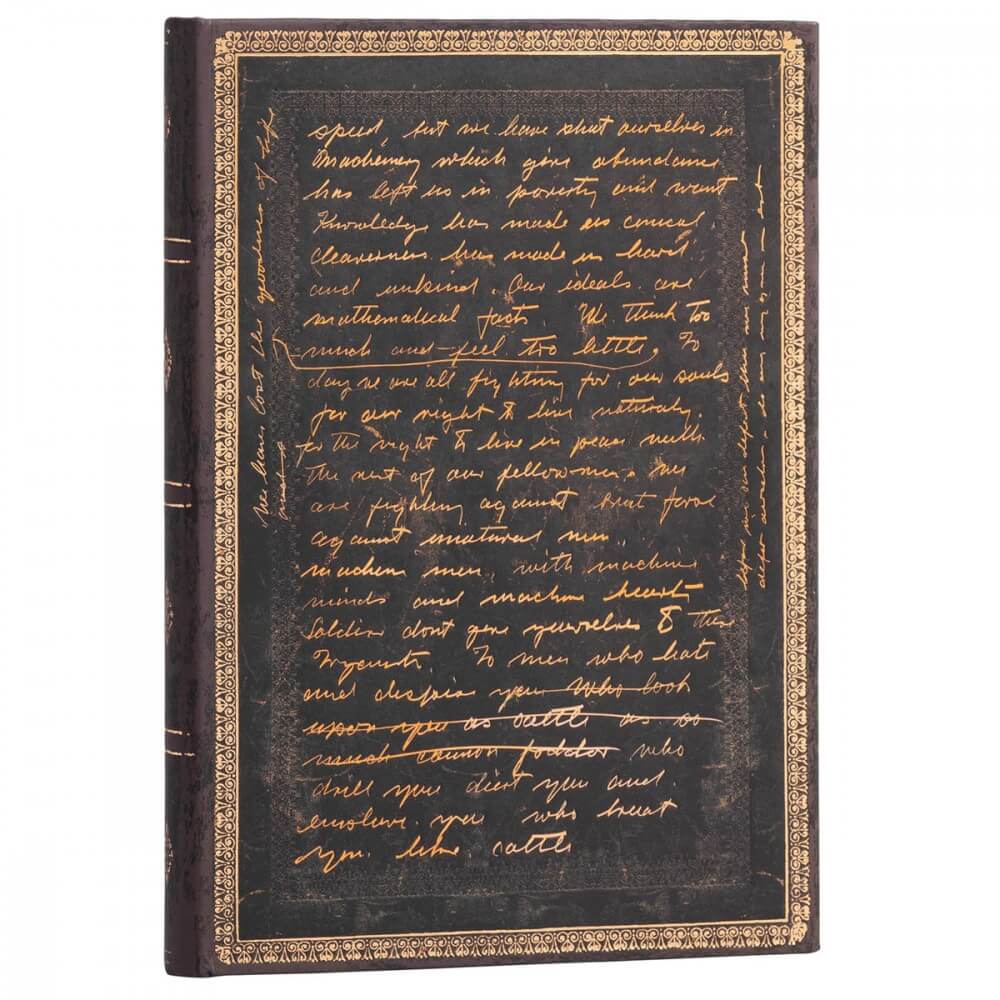 speed, but we have shut ourselves in
Machinery which give abundance
has left us in poverty and want
Knowledge has made us cinical.
cleaverness has made us hard
and unkind. Our ideals are
mathematical facts We think too
much and feel too little. To
day we are all fighting for our souls
for our right to live naturaly.
for the right to live in peace with
the rest of our fellow men we
are fighting against
against unatural men
machine men, with machine
minds and machine hearts
Soldiers dont give yourselves to these
To men who hate
and despise you who look
upon you as cattle as so
much cannon fodder who
drill you diet you and
enslave you who treat
you like cattle
We have lost the goodness of life